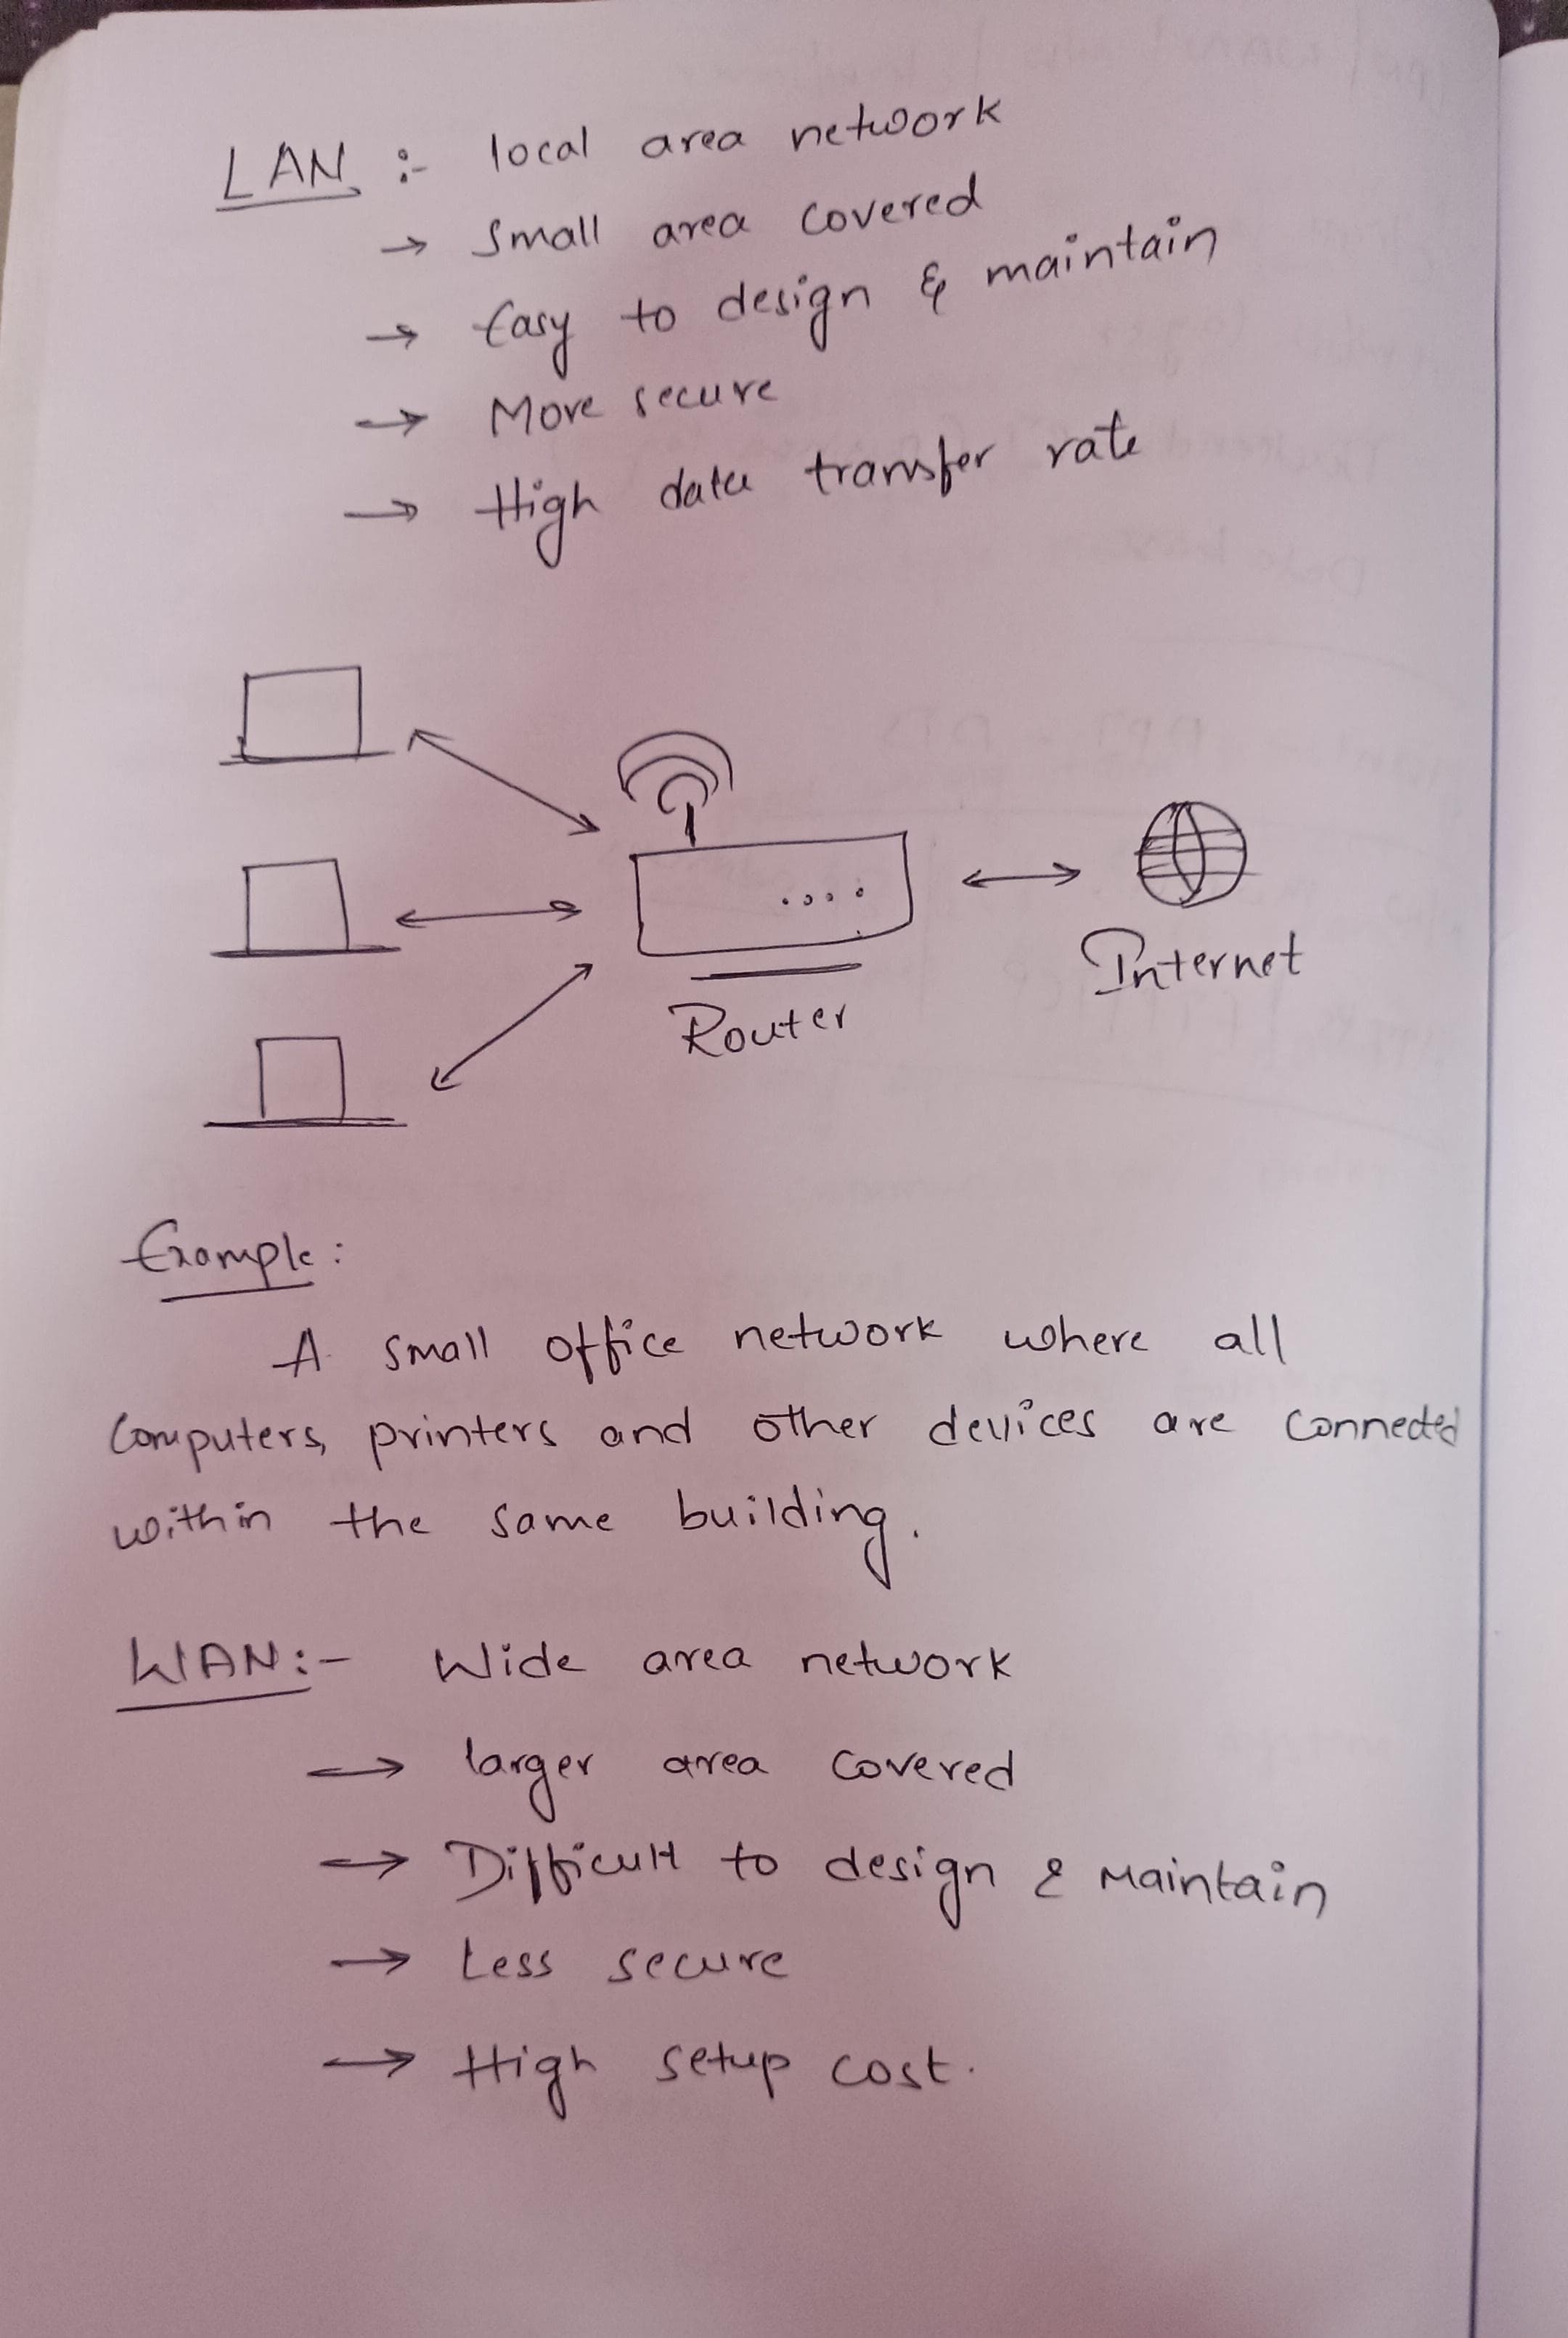 LAN :- local area network
→ Small area covered
→ Easy to design & maintain
→ More secure
→ High data transfer rate
Router
Internet
Example:
A small office network where all
Computers, printers and other devices are connected
within the same building.
WAN:- Wide area network
→ larger area covered
→ Difficult to design & Maintain
→ Less secure
→ High setup cost.